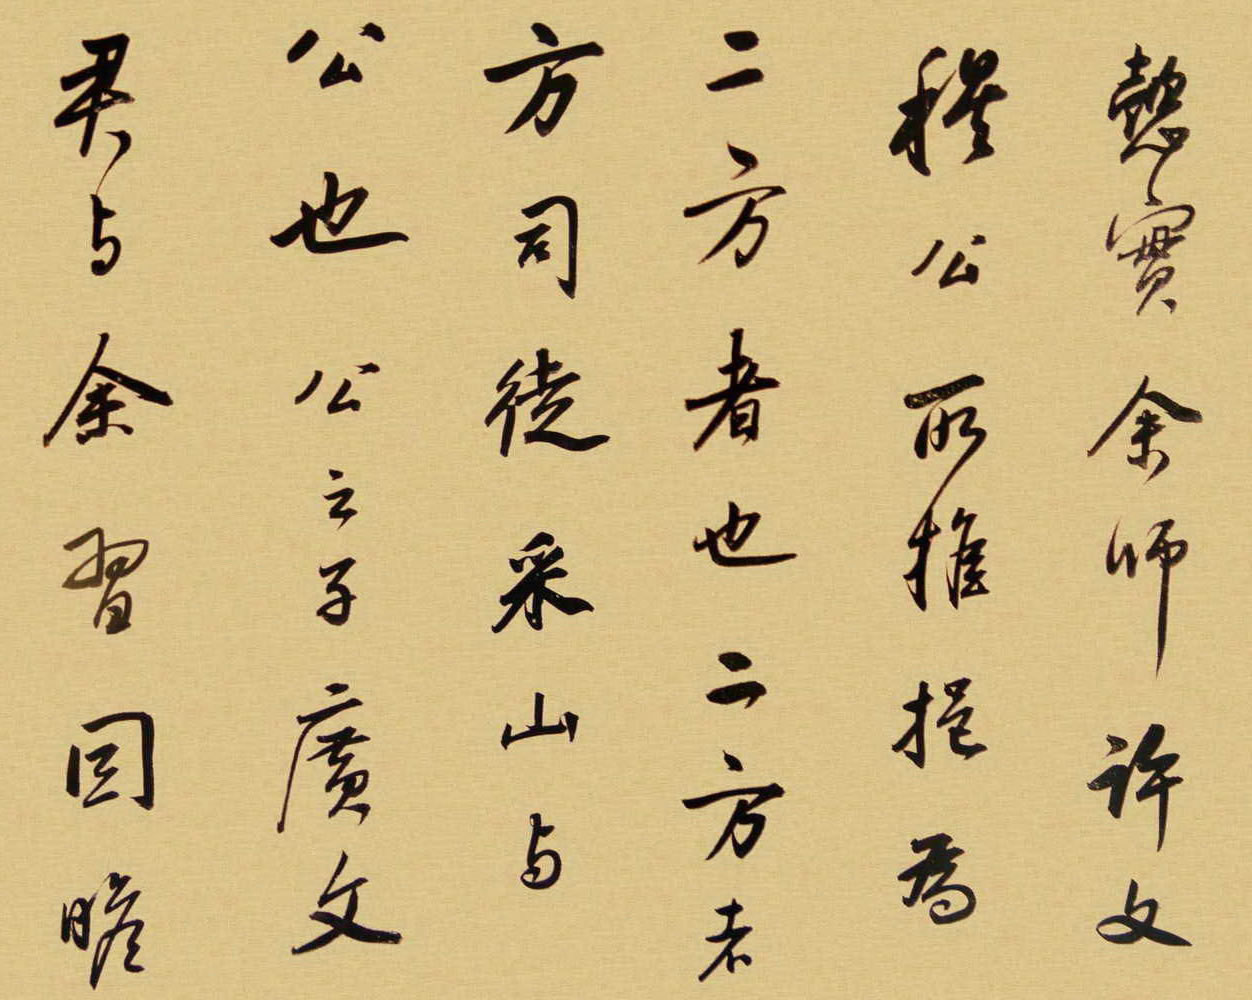 懿實余師許文
穆公所推挹為
二方者也二方者
方司徒采山与
公也公之子廣文
君与余習因瞻